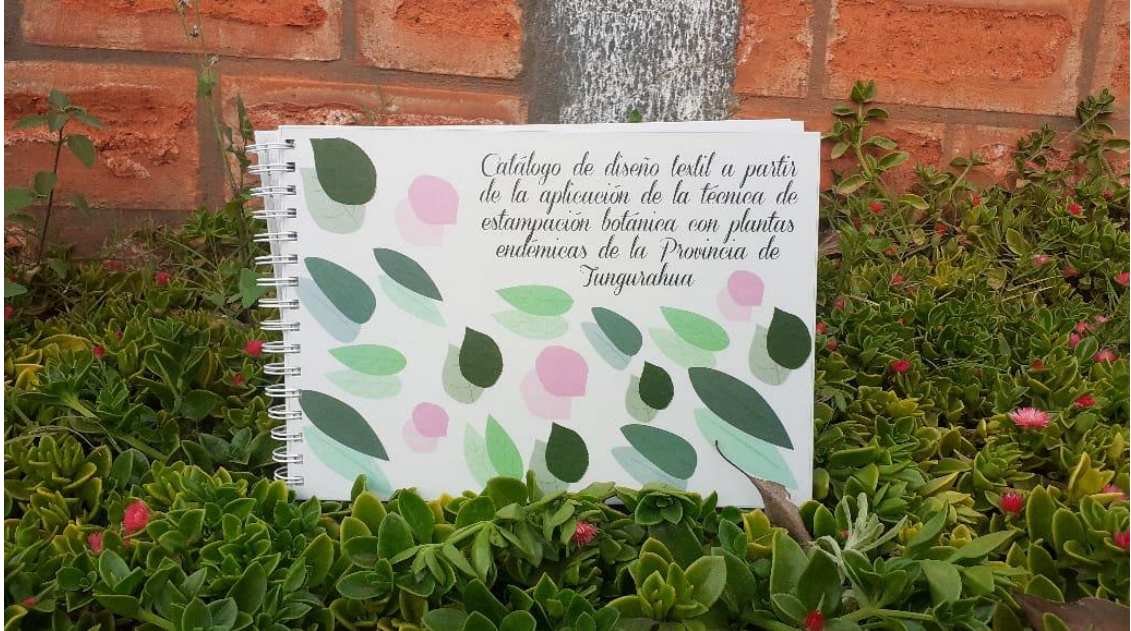 Catálogo de diseño textil a partir
de la aplicación de la técnica de
estampación botánica con plantas
endémicas de la Provincia de
Tungurahua